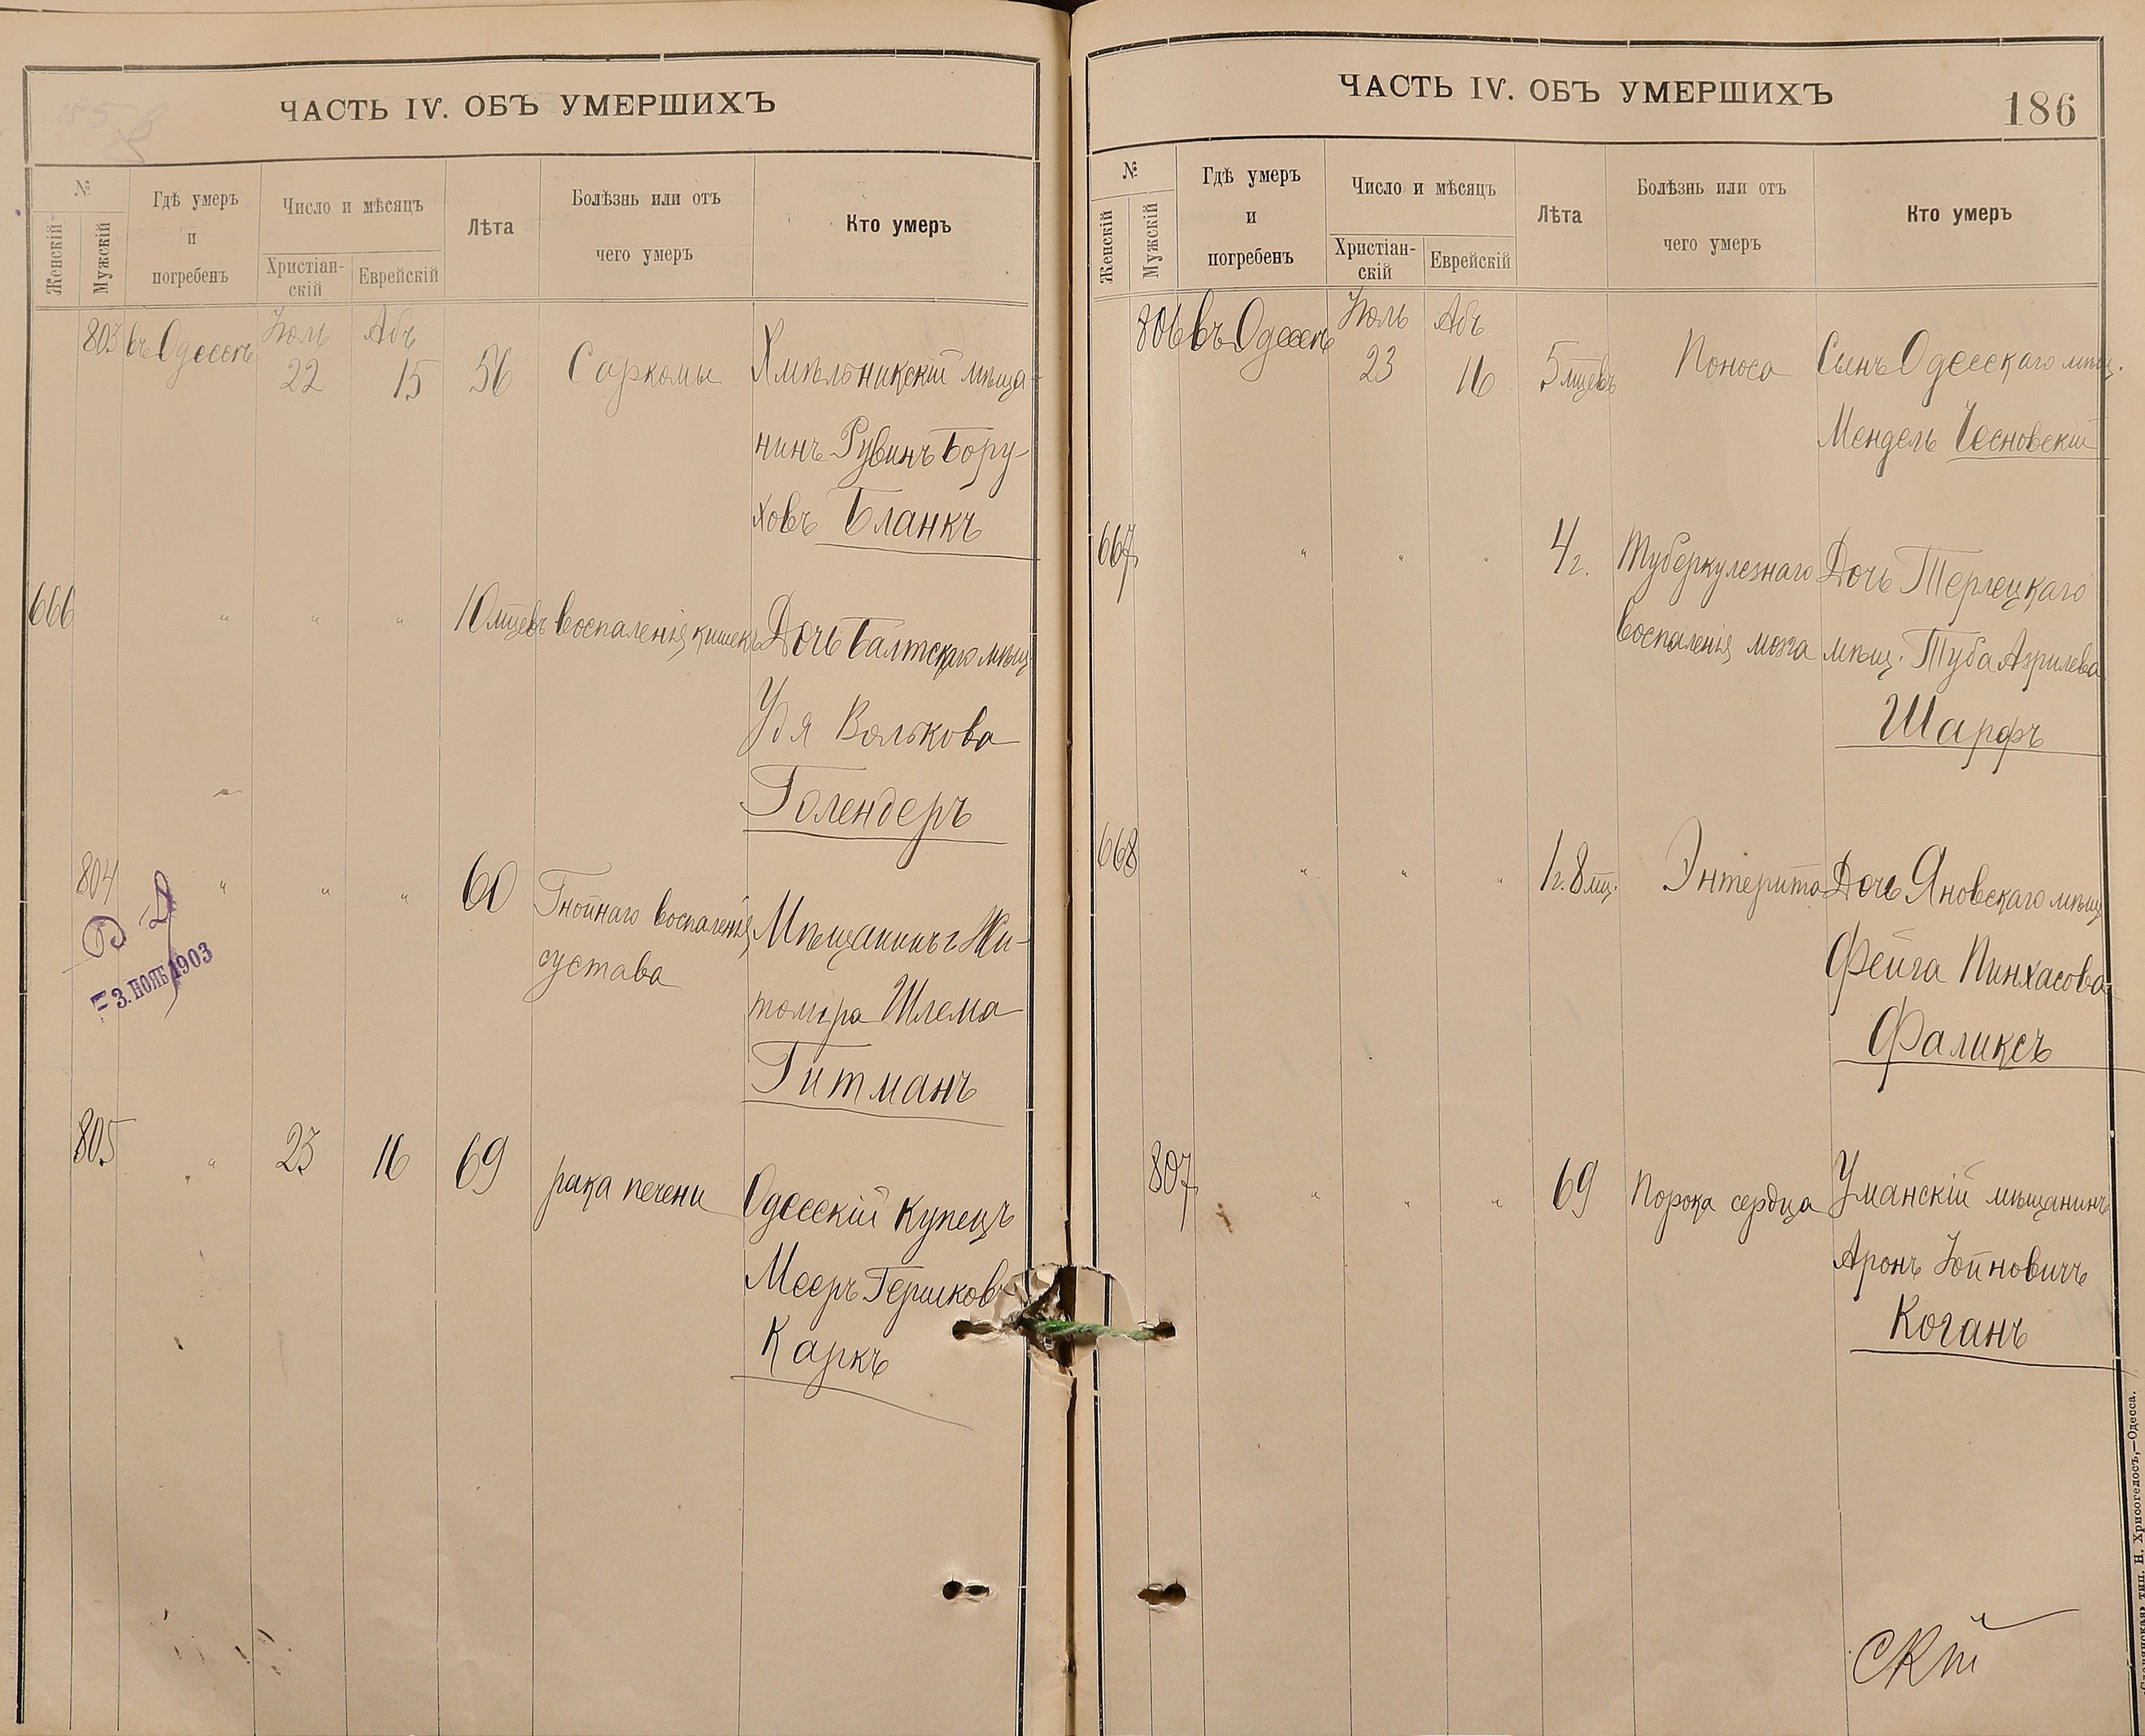 ЧАСТЬ IV. ОБЪ УМЕРШИХЪ
№
Женскій
Мужскій
Гдѣ умеръ
и
погребенъ
Число и мѣсяцъ
Христіан-
скій
Еврейскій
Лѣта
Болѣзнь или отъ
чего умеръ
Кто умеръ
803 въ Одессѣ Іюль 22 Абъ 15 56 Саркомы Хмѣльникскій мѣща-
нинъ Рувинъ Бору-
ховъ Бланкъ
666 " " " 10 мцевъ воспаленія кишекъ Дочь Балтскаго мѣщ.
Удя Волькова
Голендеръ
804 " " " 60 Гнойнаго воспаленія Мѣщанинъ г. Жи-
сустава
томіра Шлема
Гитманъ
3. НОЯБ 1903
805 " 23 16 69 рака печени Одесскій купецъ
Мееръ Гершков
Каркъ
ЧАСТЬ IV. ОБЪ УМЕРШИХЪ
186
№
Женскій
Мужскій
Гдѣ умеръ
и
погребенъ
Число и мѣсяцъ
Христіан-
скій
Еврейскій
Лѣта
Болѣзнь или отъ
чего умеръ
Кто умеръ
806 въ Одессѣ Іюль 23 Абъ 16 5 мцевъ Поноса Сынъ Одесскаго мѣщ.
Мендель Чесновскій
667 " " " 4 г. Туберкулезнаго Дочь Терлецкаго
воспаленія мозга мѣщ. Туба Азрилева
Шарфъ
668 " " " 1 г. 8 мц. Энтерита Дочь Яновскаго мѣщ.
Фейга Пинхасова
Фаликсъ
807 " " " 69 Порока сердца Уманскій мѣщанинъ
Аронъ Іойновичъ
Коганъ
Славянская» тип. Н. Хрисогелосъ,—Одесса.